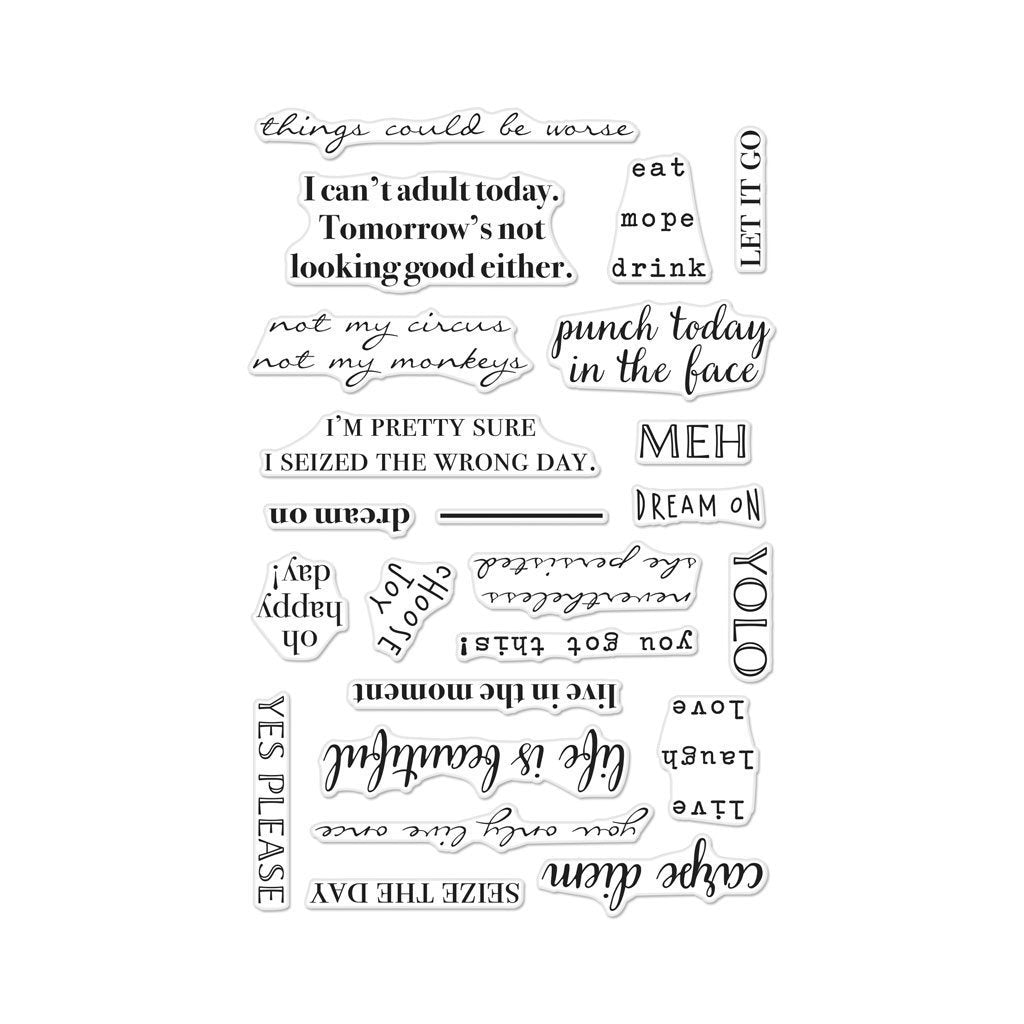 things could be worse
I can't adult today.
Tomorrow's not
looking good either.
eat
mope
drink
LET IT GO
not my circus
not my monkeys
punch today
in the face
I'M PRETTY SURE
I SEIZED THE WRONG DAY.
MEH
dream on
DREAM ON
oh
happy
day!
CHOOSE
JOY
nevertheless
she persisted
YOLO
you got this!
live in the moment
YES PLEASE
life is beautiful
live
laugh
love
you only live once
carpe diem
SEIZE THE DAY